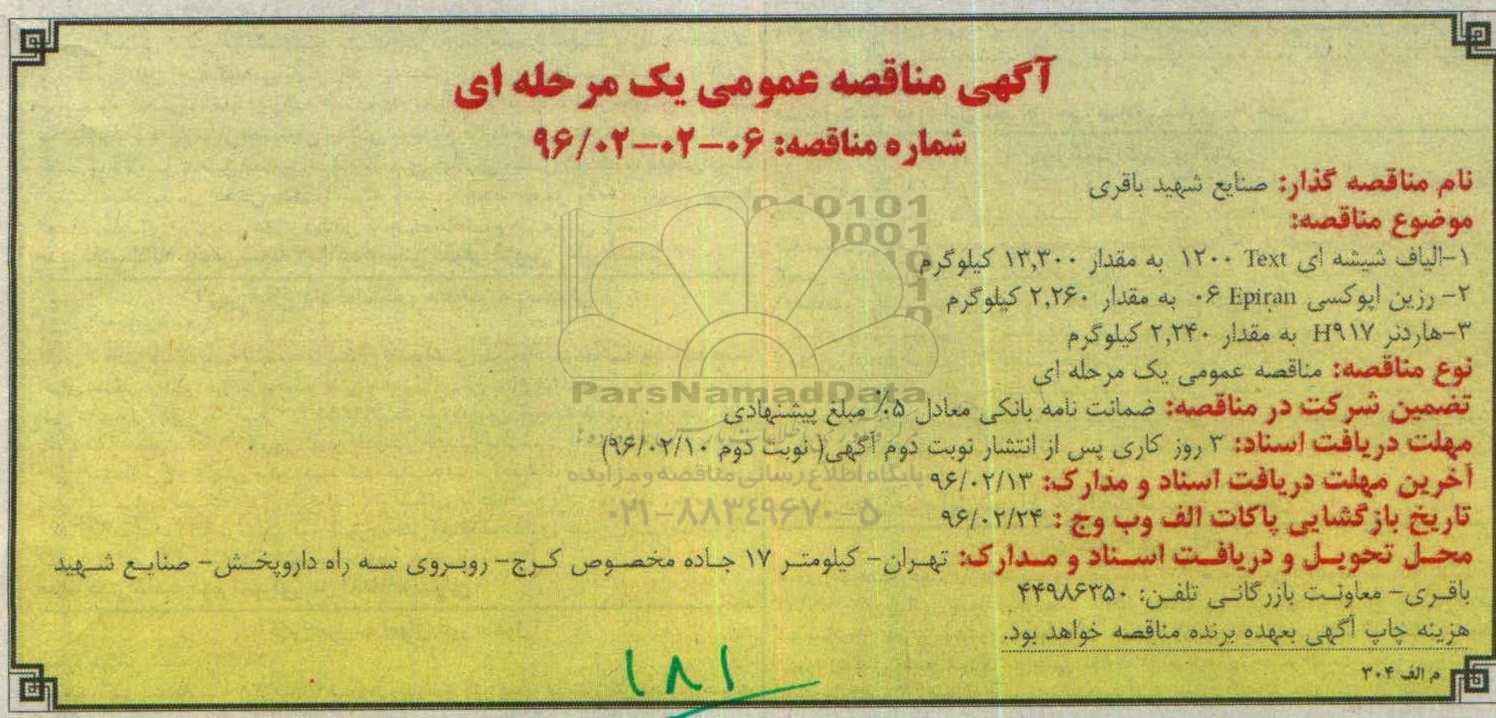 آگهی مناقصه عمومی یک مرحله ای
شماره مناقصه: ۰۶-۰۲-۹۶/۰۲
نام مناقصه گذار: صنایع شهید باقری
موضوع مناقصه:
۱-الیاف شیشه ای Text ۱۲۰۰ به مقدار ۱۳,۳۰۰ کیلوگرم
۲- رزین اپوکسی Epiran ۰۶ به مقدار ۲,۲۶۰ کیلوگرم
۳-هاردنر H۹۱۷ به مقدار ۲,۲۴۰ کیلوگرم
نوع مناقصه: مناقصه عمومی یک مرحله ای
تضمین شرکت در مناقصه: ضمانت نامه بانکی معادل ۵٪ مبلغ پیشنهادی
مهلت دریافت اسناد: ۳ روز کاری پس از انتشار نوبت دوم آگهی( نوبت دوم ۹۶/۰۲/۱۰)
آخرین مهلت دریافت اسناد و مدارک: ۹۶/۰۲/۱۳
تاریخ بازگشایی پاکات الف وب وج : ۹۶/۰۲/۲۴
محل تحویل و دریافت اسناد و مدارک: تهران- کیلومتر ۱۷ جاده مخصوص کرج- روبروی سه راه داروپخش- صنایع شهید
باقری- معاونت بازرگانی تلفن: ۴۴۹۸۶۳۵۰
هزینه چاپ آگهی بعهده برنده مناقصه خواهد بود.
م الف ۳۰۴
۱۸۱
ParsNamadData
پایگاه اطلاع رسانی مناقصه و مزایده
۰۲۱-۸۸۳۴۹۶۷۰-۵